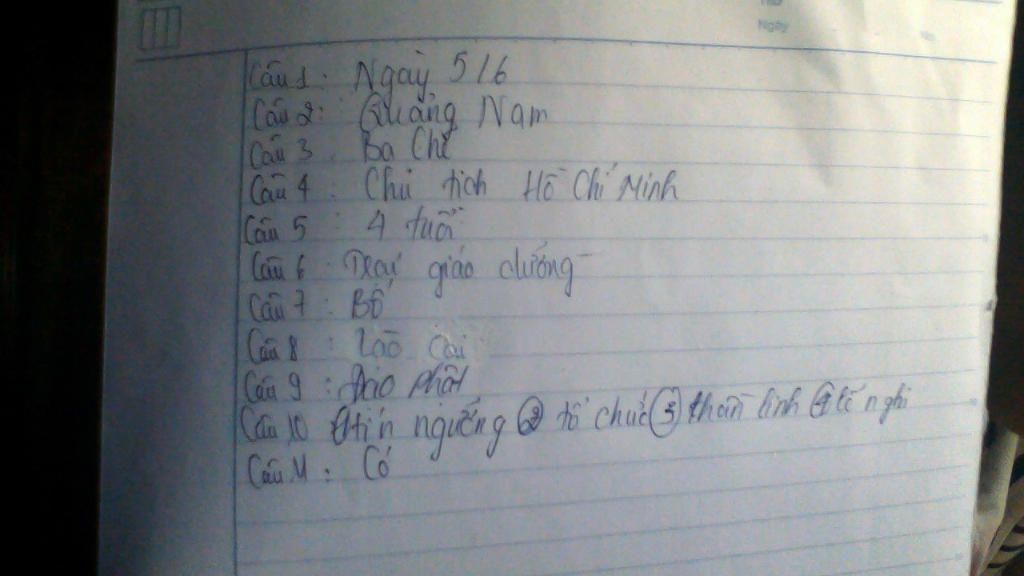 Ngày
Câu 1: Ngày 5/6
Câu 2: Quảng Nam
Câu 3 Ba Chỉ
Câu 4: Chủ tịch Hồ Chí Minh
Câu 5: 4 tuổi
Câu 6: giáo dưỡng
Câu 7: Bố
Câu 8: Lào Cai
Câu 9: Đạo Phật
Câu 10 ① tín ngưỡng ② tổ chức ③ thần linh ④ lễ nghi
Câu 11: Có